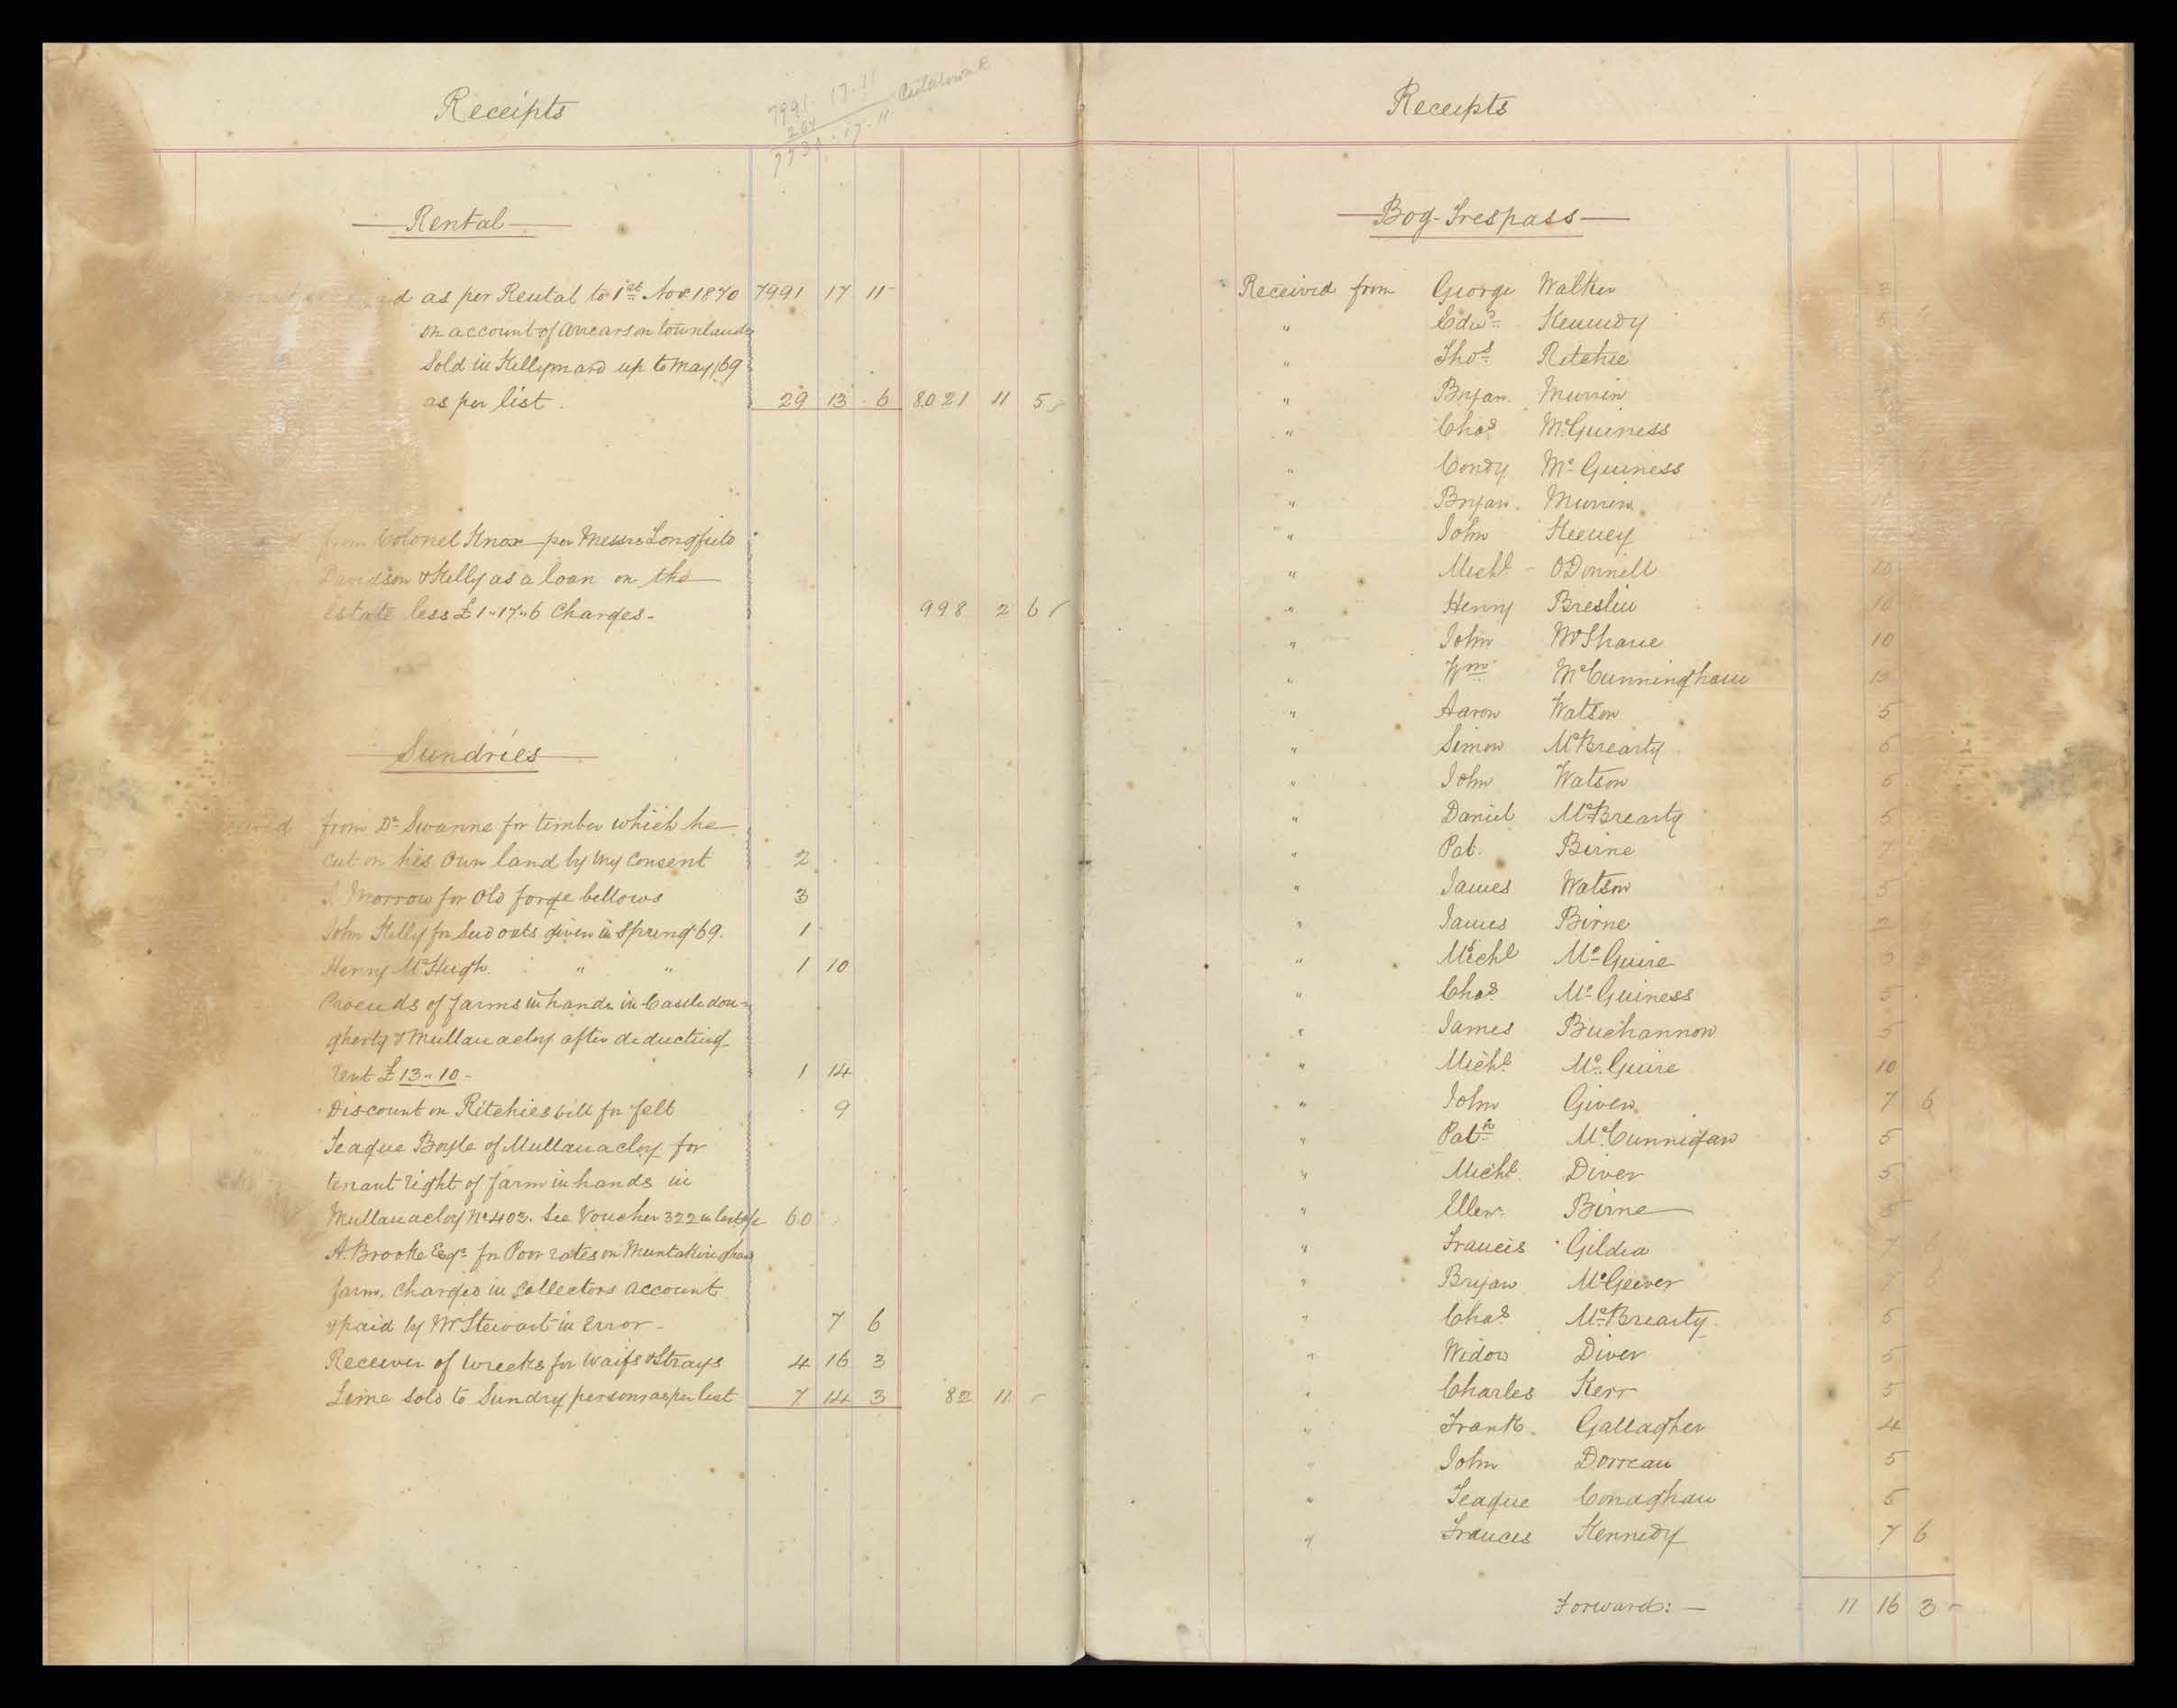 Receipts
7991 . 17 . 11
264
7730 . 17 . 11
Rental
as per Rental to 1st Nov 1870 7991 17 11
on account of arrears on townlands
Sold in Killymard up to May /69
as per list . 29 13 6 8021 11 5
from Colonel Knox per Messrs Longfield
Davidson & Kelly as a loan on the
Estate less £1"17"6 Charges - 998 2 6
Sundries
from Dr Swanne for timber which he
cut on his own land by my Consent 2
Morrow for old forge bellows 3
John Kelly for Seed oats given in Spring 69. 1
Henry McHugh " " 1 10
Proceeds of farms in hands in Castledou=
gherty & Mullanacloy after deducting
rent £13"10 - 1 14
Discount on Ritchies bill for felt 9
Teague Boyle of Mullanacloy for
tenant right of farm in hands in
Mullanacloy No 403. See Voucher 322 in last a/c 60
A. Brooke Esqr for Poor rates on
farm. Charged in Collectors account
& paid by Mr Stewart in Error - 7 6
Receiver of wrecks for waifs & Strays 4 16 3
Lime Sold to Sundry persons as per list 7 14 3 82 11
Receipts
Bog-Trespass
Received from George Walker
" Edwd Kennedy 5
" Thos Ritchie
" Bryan Murrin
" Chas McGuiness
" Condy McGuiness
" Bryan Murrin 10
" John Keeney
" Michl O'Donnell 10
" Henry Breslin 10
" John McShane 10
" Wm McCunningham
" Aaron Watson 5
" Simon McBrearty
" John Watson
" Daniel McBrearty 5
" Pat. Birne 7
" James Watson 5
" James Birne 2
" Michl McGuire
" Chas McGuiness 5
" James Buchannon 5
" Michl McGuire 10
" John Given 7 6
" Patk McCunnigan 5
" Michl Diver 5
" Ellen Birne 5
" Francis Gildea 7
" Bryan McGeever 7
" Chas McBrearty 5
" Widow Diver 5
" Charles Kerr 5
" Frank Gallagher 4
" John Dorrean 5
" Teague Conaghan 5
" Frances Kennedy 7 6
Forward: — 11 16 3